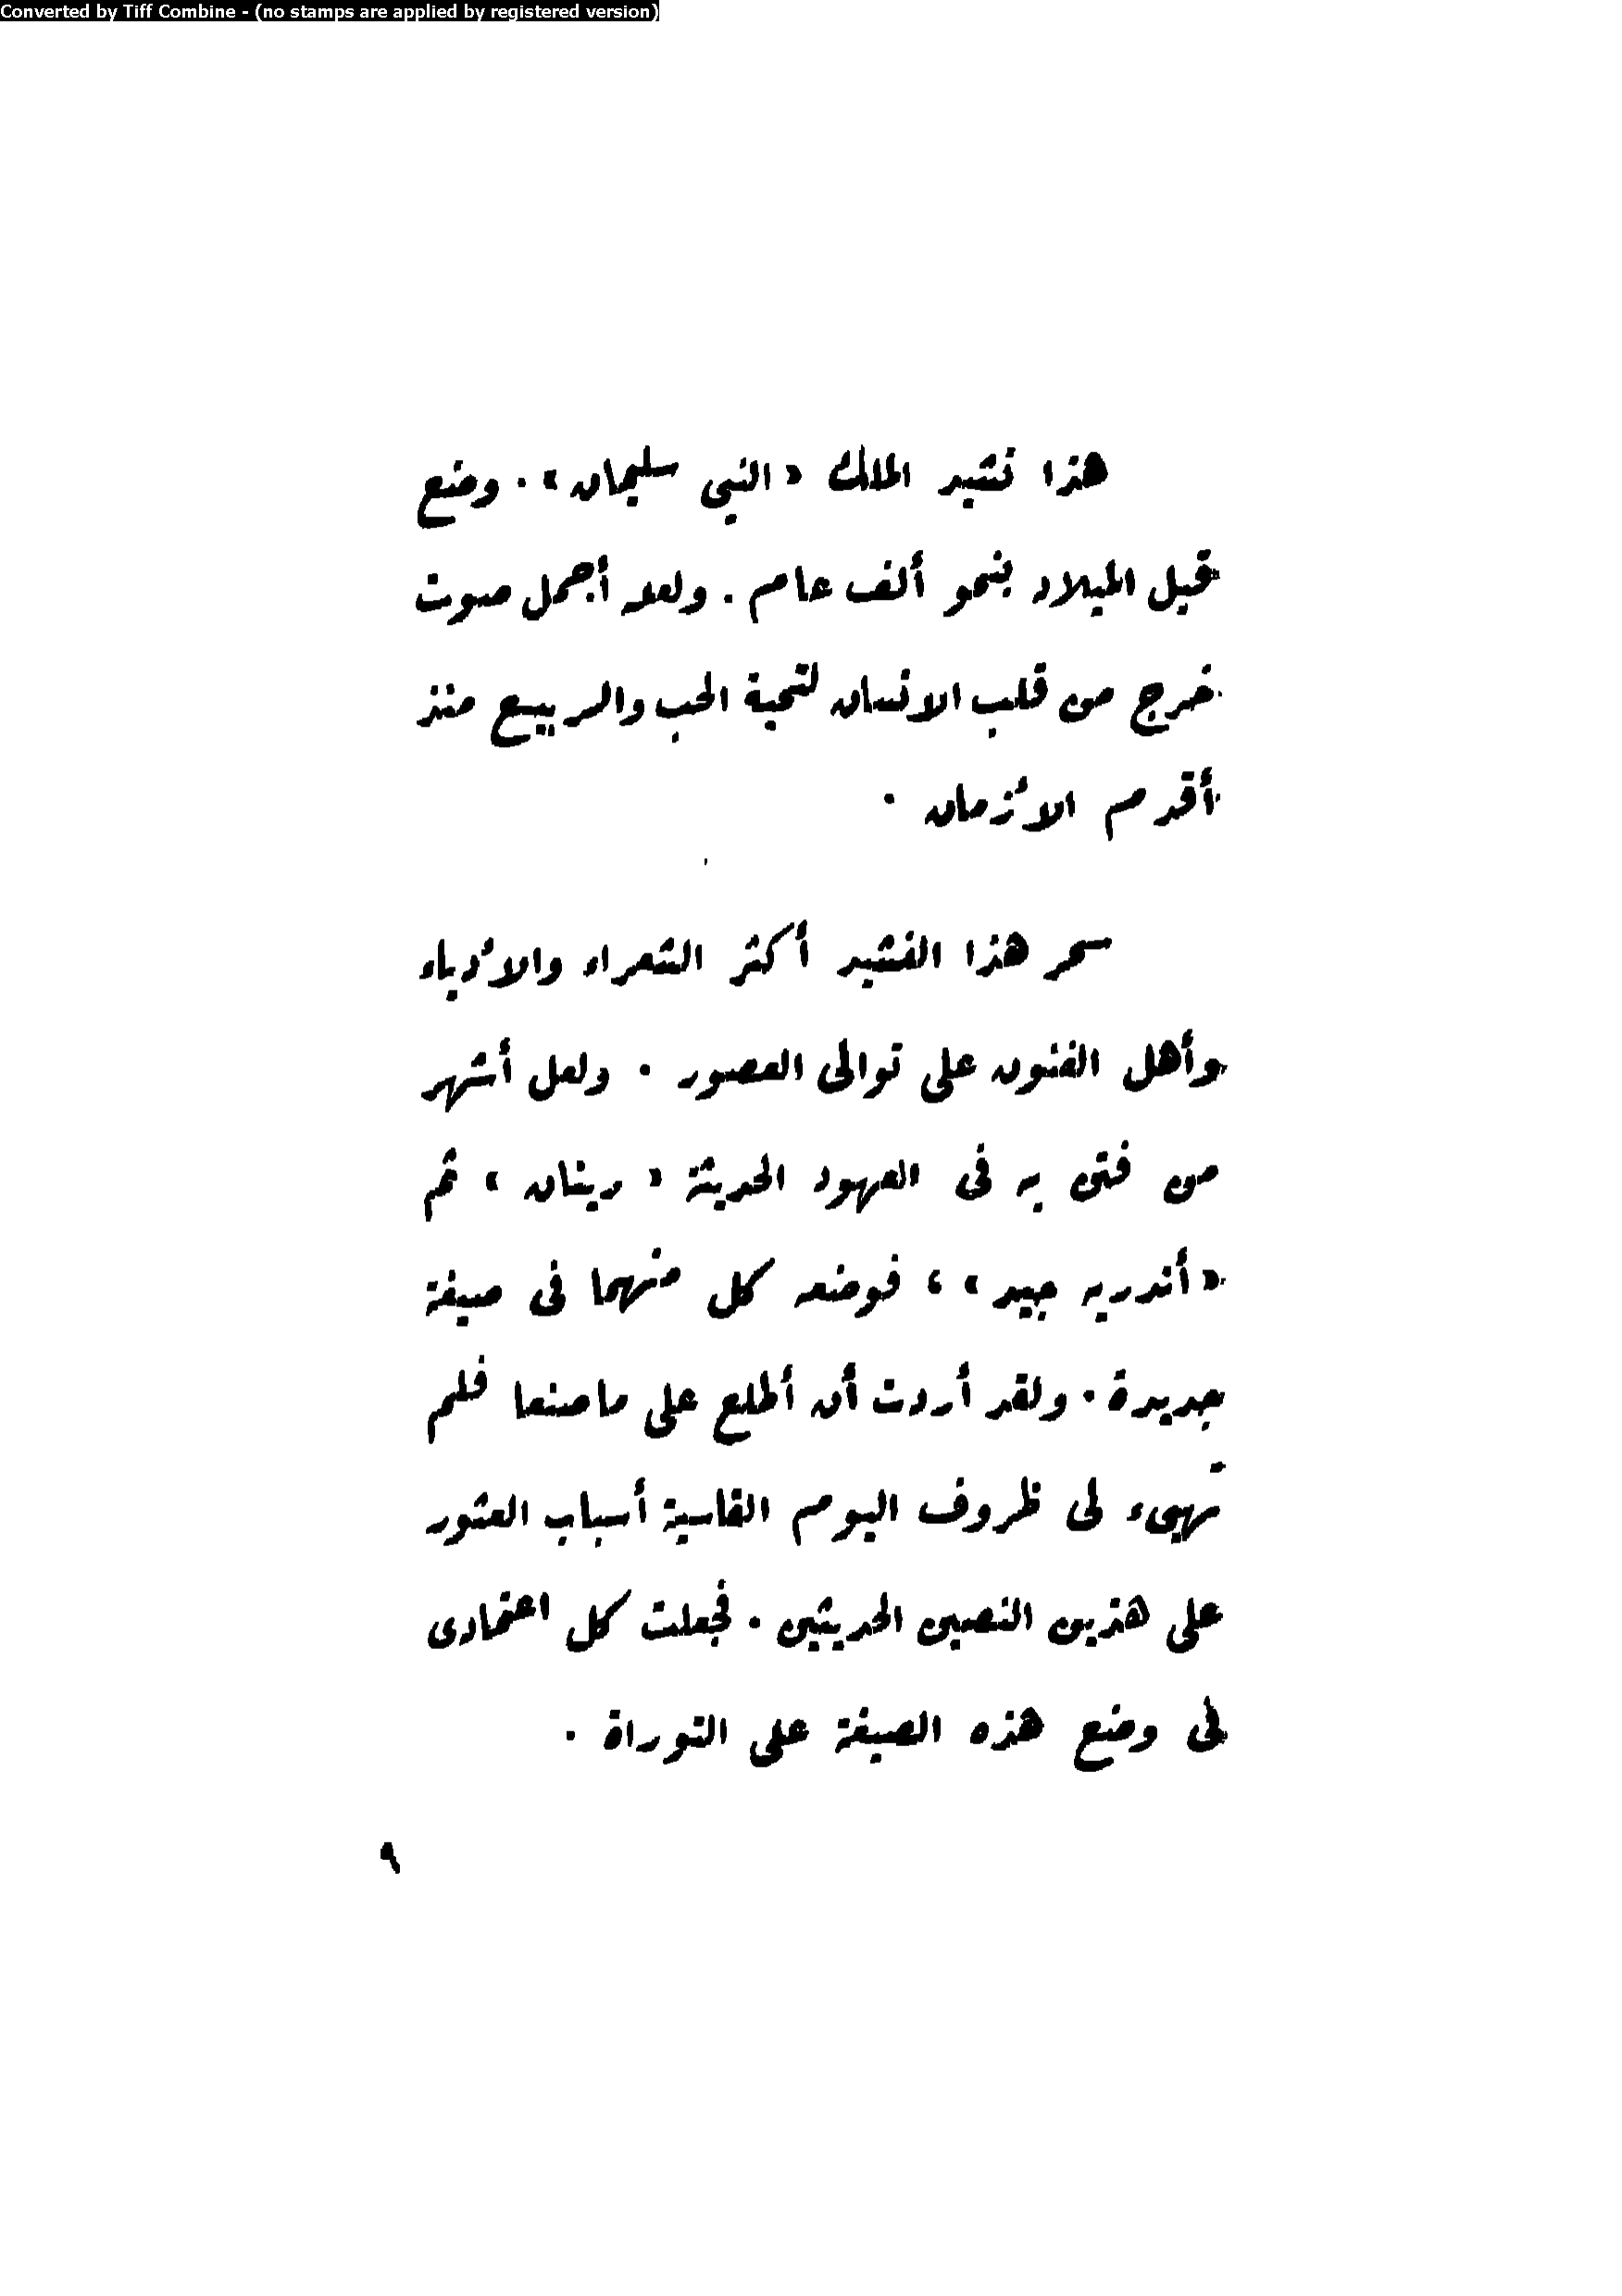 Converted by Tiff Combine - (no stamps are applied by registered version)
هذا نشيد الملك «النبي سليمان» . وضع
قبل الميلاد بنحو ألف عام . ولعله أجمل صوت
خرج من قلب الانسان لتحية الحب والربيع منذ
أقدم الأزمان .
سحر هذا النشيد أكثر الشعراء والأدباء
وأهل الفنون على توالى العصور . ولعل أشهر
من فتن به فى العهود الحديثة «رينان» ثم
«أندريه جيد» ، فوضعه كل منهما فى صيغة
جديدة . ولقد أردت أن أطلع على ما صنعا فلم
تهيىء لى ظروف اليوم القاسية أسباب العثور
على هذين النصين الحديثين . فجعلت كل اعتمادى
فى وضع هذه الصيغة على التوراة .
٩